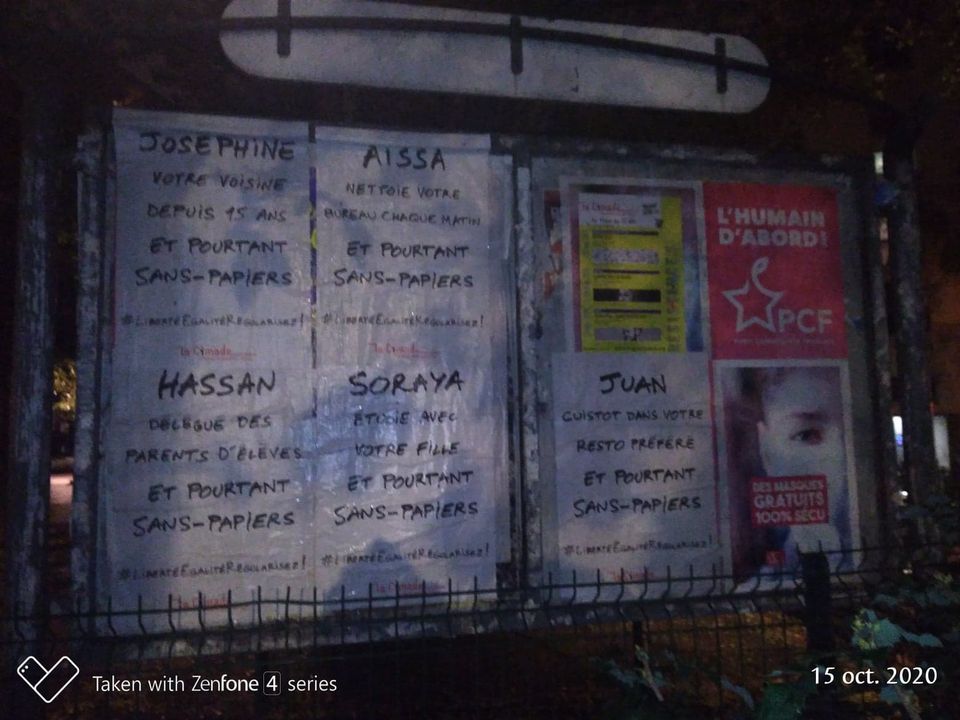 JOSEPHINE
VOTRE VOISINE
DEPUIS 15 ANS
ET POURTANT
SANS-PAPIERS
#LIBERTÉEGALITÉREGULARISEZ!
la Cimade
AISSA
NETTOIE VOTRE
BUREAU CHAQUE MATIN
ET POURTANT
SANS-PAPIERS
#LIBERTÉEGALITÉREGULARISEZ!
la Cimade
HASSAN
DÉLÉGUÉ DES
PARENTS D'ÉLÈVES
ET POURTANT
SANS-PAPIERS
#LIBERTÉEGALITÉREGULARISEZ!
la Cimade
SORAYA
ÉTUDIE AVEC
VOTRE FILLE
ET POURTANT
SANS-PAPIERS
#LIBERTÉEGALITÉREGULARISEZ!
la Cimade
la Cimade
L'HUMAIN
D'ABORD!
PCF
JUAN
CUISTOT DANS VOTRE
RESTO PRÉFÉRÉ
ET POURTANT
SANS-PAPIERS
#LIBERTÉEGALITÉREGULARISEZ!
la Cimade
DES MASQUES
GRATUITS
100% SÉCU
Taken with Zenfone 4 series
15 oct. 2020